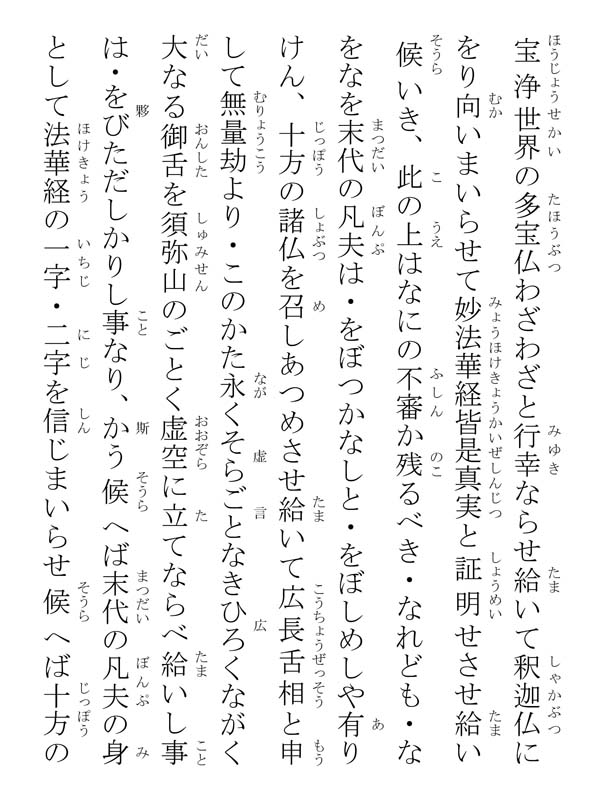 宝浄世界の多宝仏わざわざと行幸ならせ給いて釈迦仏に
をり向いまいらせて妙法華経皆是真実と証明せさせ給い
候いき、此の上はなにの不審か残るべき・なれども・な
をなを末代の凡夫は・をぼつかなしと・をぼしめしや有り
けん、十方の諸仏を召しあつめさせ給いて広長舌相と申
して無量劫より・このかた永くそらごとなきひろくながく
大なる御舌を須弥山のごとく虚空に立てならべ給いし事
は・をびただしかりし事なり、かう候へば末代の凡夫の身
として法華経の一字・二字を信じまいらせ候へば十方の